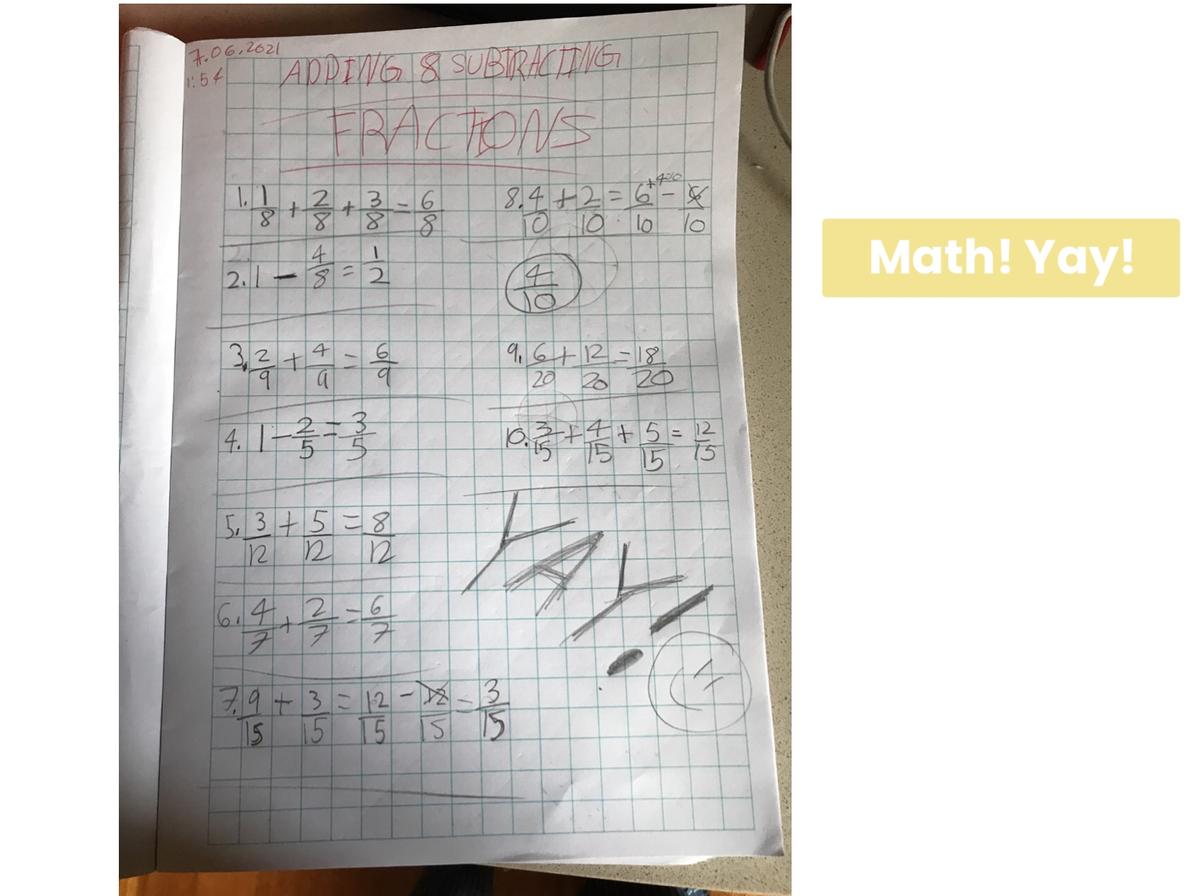 7.06.2021
1:54
ADDING & SUBTRACTING
FRACTIONS
1. 1/8 + 2/8 + 3/8 = 6/8
2. 1 - 4/8 = 1/2
3. 2/9 + 4/9 = 6/9
4. 1 - 2/5 = 3/5
5. 3/12 + 5/12 = 8/12
6. 4/7 + 2/7 = 6/7
7. 9/15 + 3/15 = 12/15 - 12/15 = 3/15
8. 4/10 + 2/10 = 6/10 - /10
4/10
9. 6/20 + 12/20 = 18/20
10. 3/15 + 4/15 + 5/15 = 12/15
YAY!
Math! Yay!